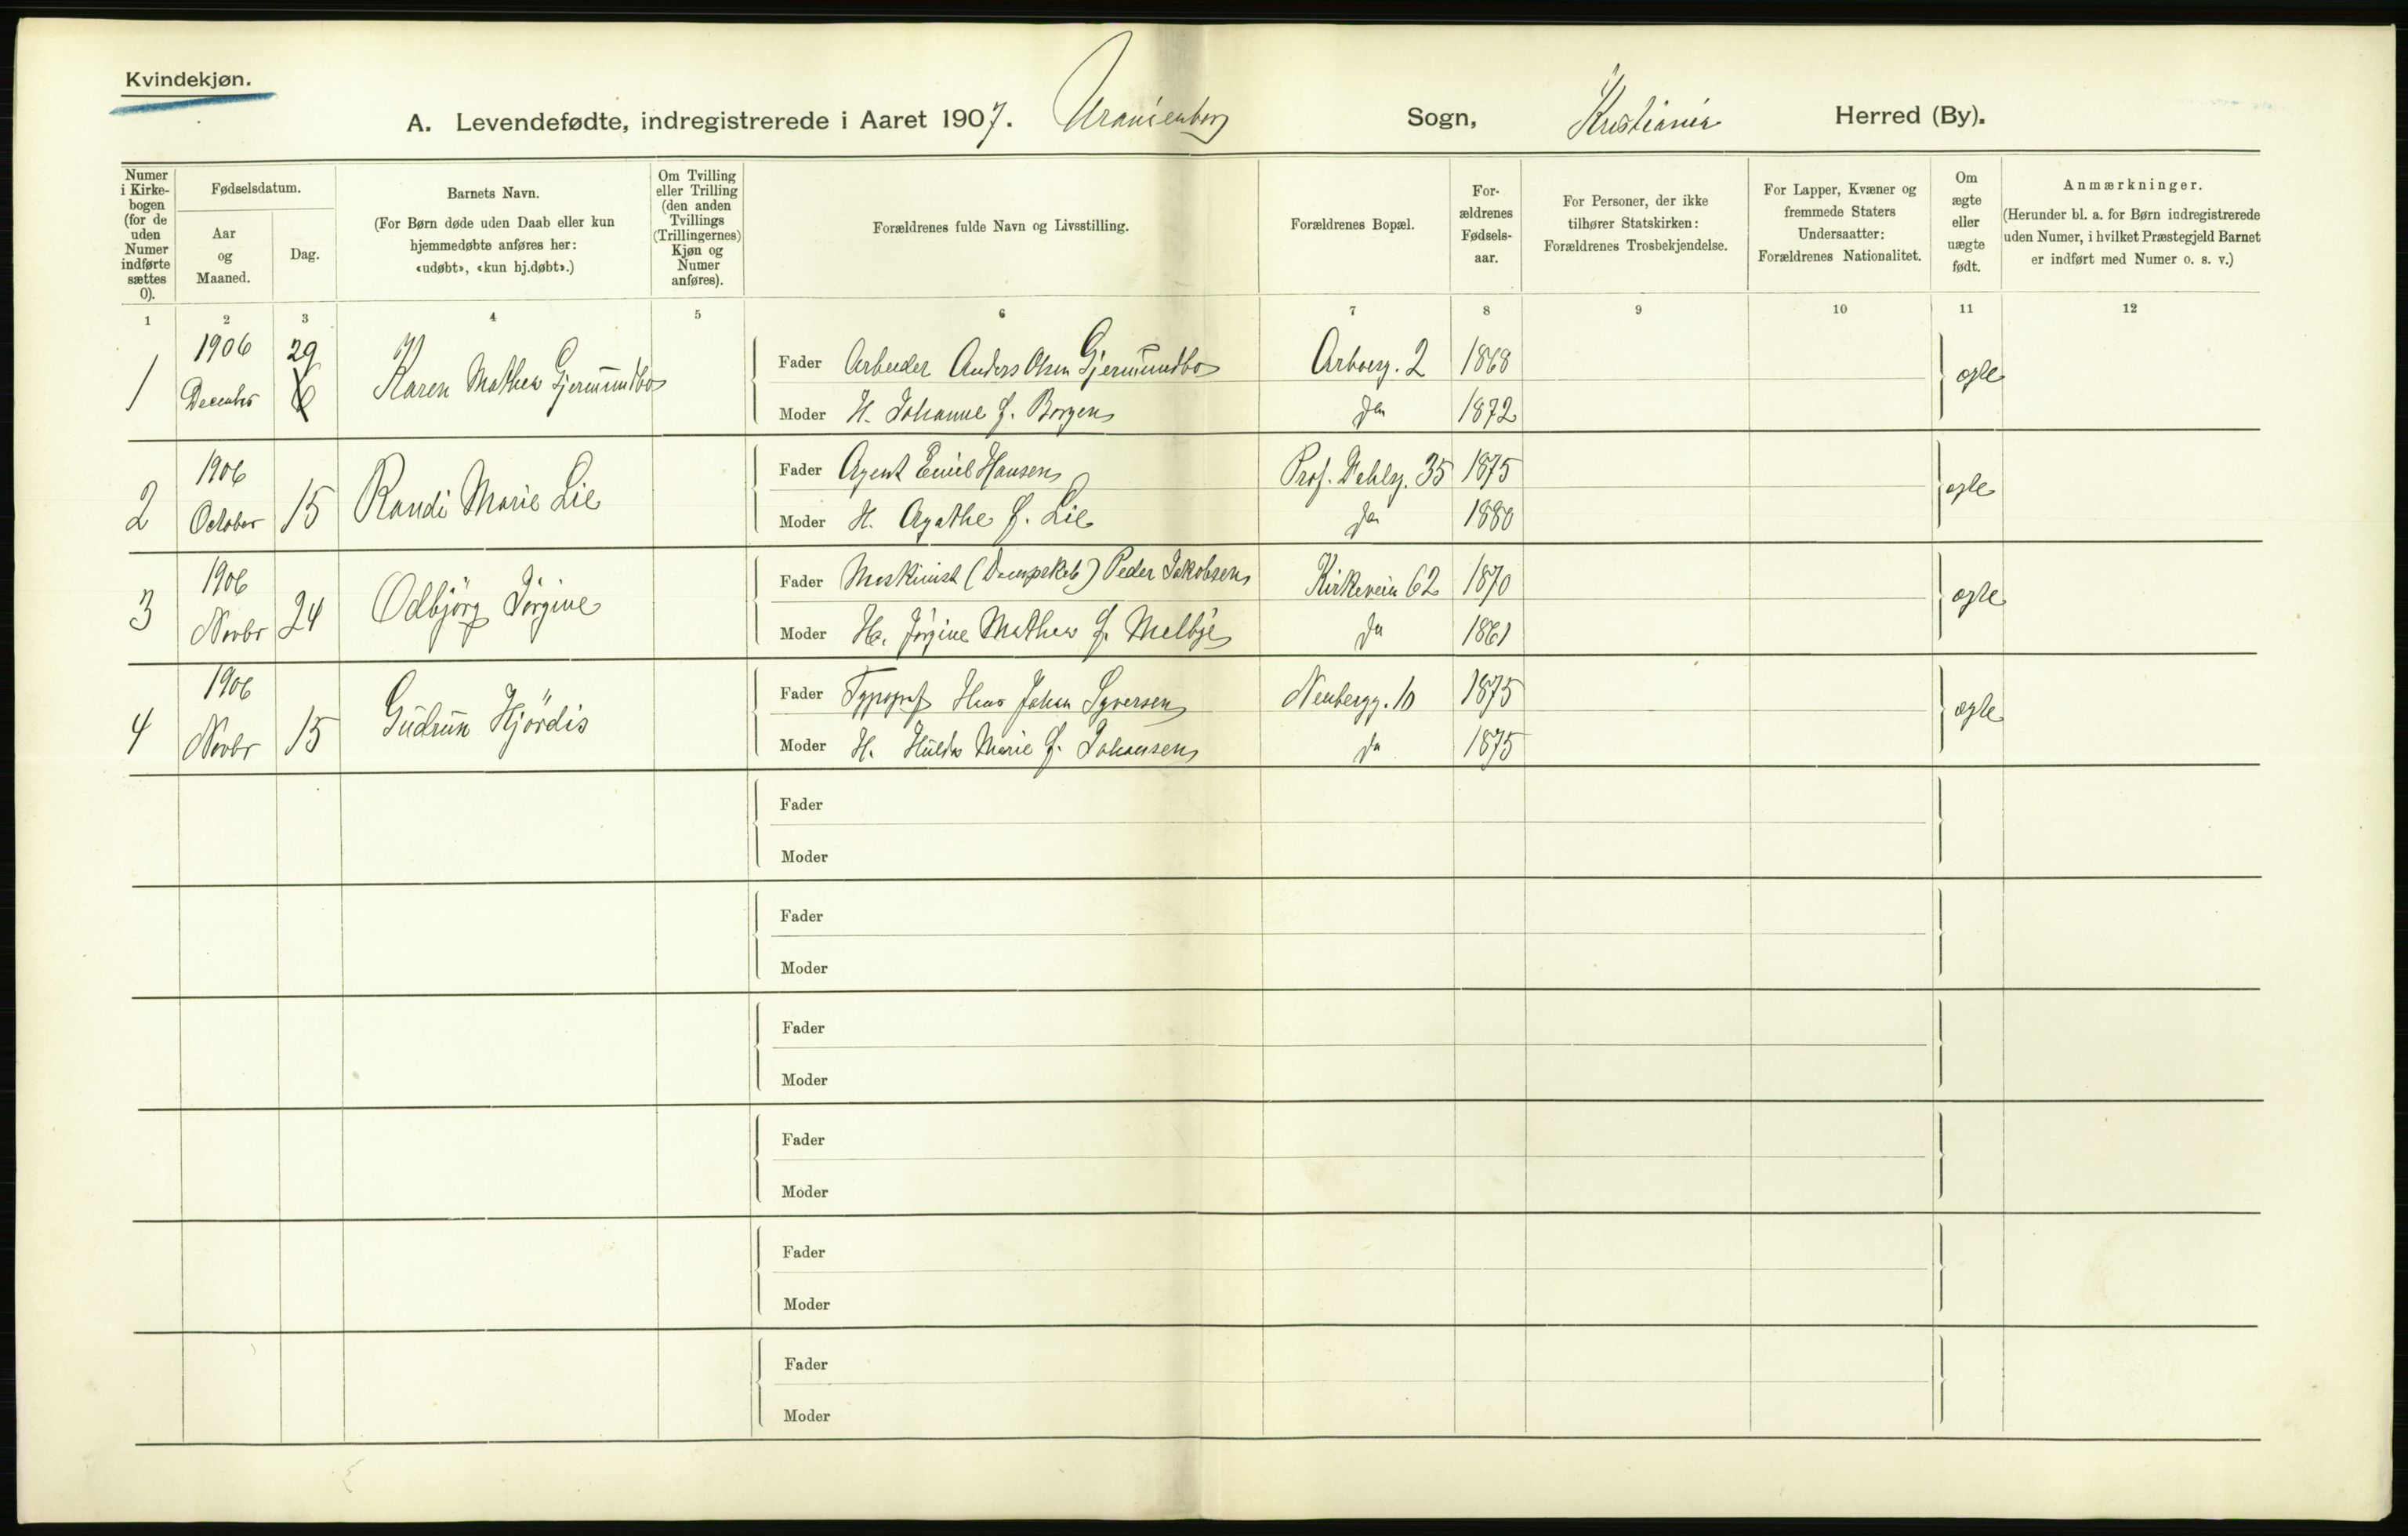 Kvindekjøn.
A. Levendefødte, indregistrerede i Aaret 1907. Uranienborg Sogn, Kristiania Herred (By).
Numer i Kirkebogen (for de uden Numer indførte sættes 0).
Fødselsdatum.
Aar og Maaned.
Dag.
Barnets Navn.
(For Børn døde uden Daab eller kun hjemmedøbte anføres her: «udøbt», «kun hj.døbt».)
Om Tvilling eller Trilling (den anden Tvillings (Trillingernes) Kjøn og Numer anføres).
Forældrenes fulde Navn og Livsstilling.
Forældrenes Bopæl.
Forældrenes Fødselsaar.
For Personer, der ikke tilhører Statskirken: Forældrenes Trosbekjendelse.
For Lapper, Kvæner og fremmede Staters Undersaatter: Forældrenes Nationalitet.
Om ægte eller uægte født.
Anmærkninger.
(Herunder bl. a. for Børn indregistrerede uden Numer, i hvilket Præstegjeld Barnet er indført med Numer o. s. v.)
1 2 3 4 5 6 7 8 9 10 11 12
1 1906 December 29 Karen Mathea Gjermundbo
Fader Arbeider Anders Olsen Gjermundbo Arboesg. 2 1868 ægte
Moder H. Johanne f. Borgen do 1872
2 1906 October 15 Randi Marie Lie
Fader Agent Emil Hansen Prof. Dahlsg. 35 1875 ægte
Moder H. Agathe f. Lie do 1880
3 1906 Novbr 24 Odbjörg Jörgine
Fader Maskinist (Dampskib) Peder Jakobsen Kirkevein 62 1870 ægte
Moder Hu. Jörgine Mathea f. Melbye do 1861
4 1906 Novbr 15 Gudrun Hjördis
Fader Typograf Hans Johan Syversen Neubergg. 10 1875 ægte
Moder H. Hulda Marie f. Johansen do 1875
Fader
Moder
Fader
Moder
Fader
Moder
Fader
Moder
Fader
Moder
Fader
Moder